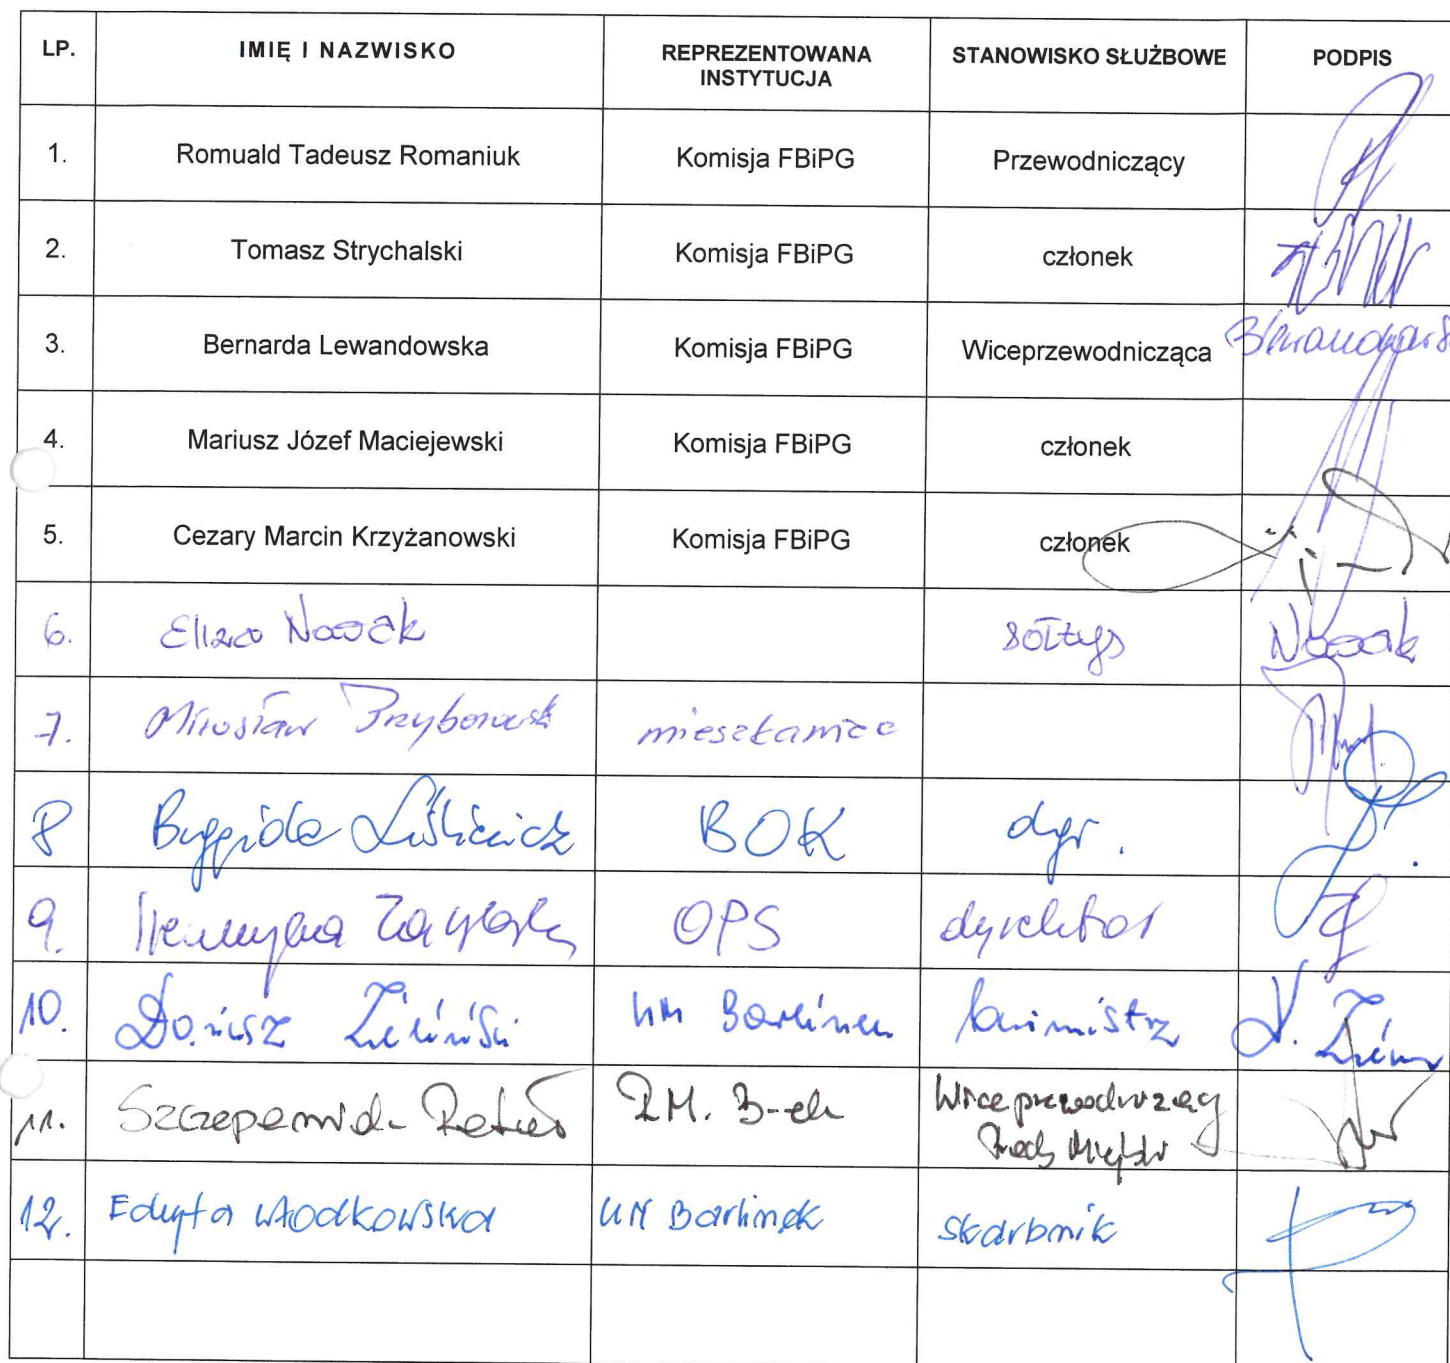 LP. IMIĘ I NAZWISKO REPREZENTOWANA INSTYTUCJA STANOWISKO SŁUŻBOWE PODPIS
1. Romuald Tadeusz Romaniuk Komisja FBiPG Przewodniczący
2. Tomasz Strychalski Komisja FBiPG członek
3. Bernarda Lewandowska Komisja FBiPG Wiceprzewodnicząca
4. Mariusz Józef Maciejewski Komisja FBiPG członek
5. Cezary Marcin Krzyżanowski Komisja FBiPG członek
6. Eliza Nowak sołtys Nowak
7. Mirosław Przyborowski mieszkaniec
8 Brygida BOK dyr.
9. OPS dyrektor
10. Dariusz Zieliński UM Barlinek burmistrz D.
11. RM. B-ek Wiceprzewodniczący
Rady Miejsk
12. Edyta Włodkowska UM Barlinek skarbnik